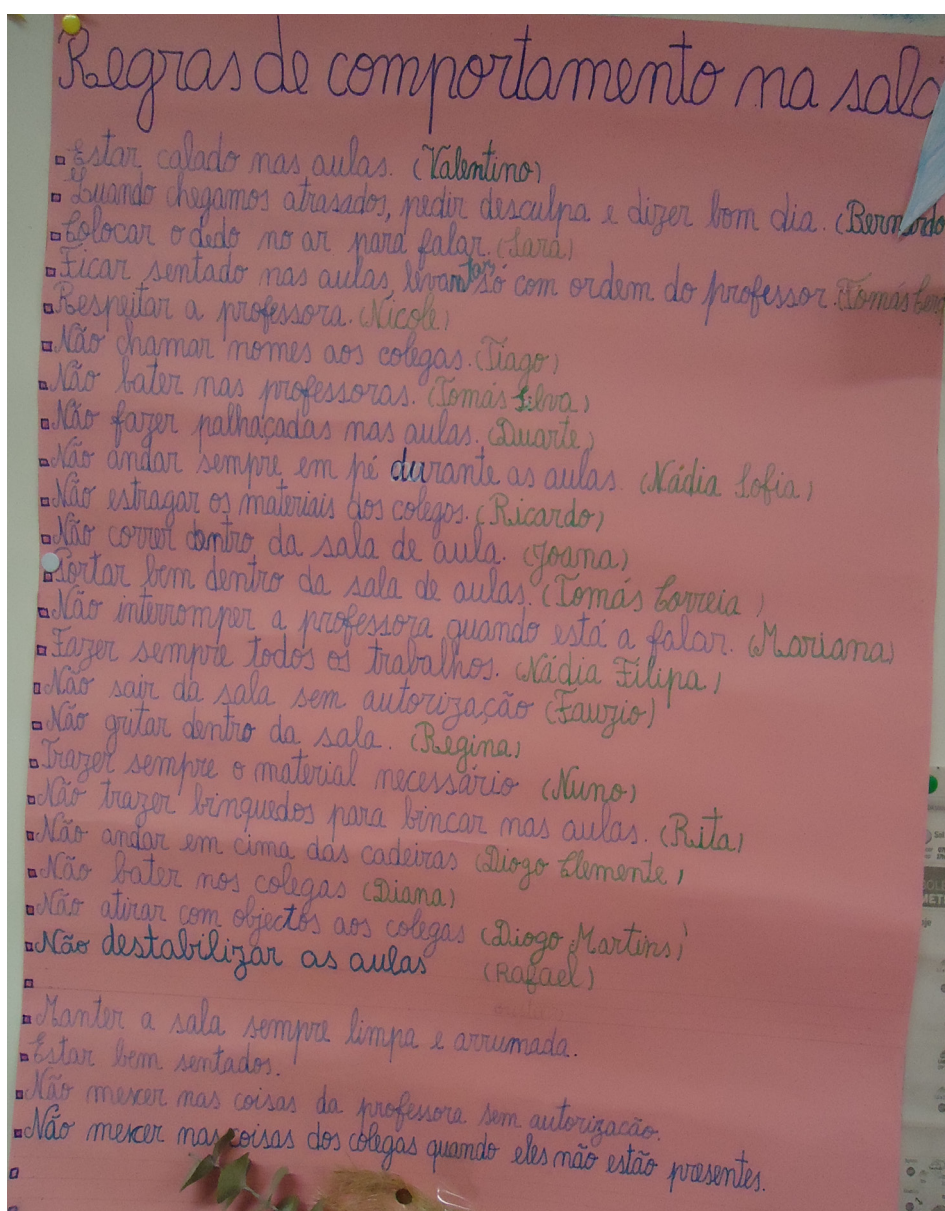 Regras de comportamento na sala
Estar calado nas aulas. (Valentino)
Quando chegamos atrasados, pedir desculpa e dizer bom dia. (Bernardo
Colocar o dedo no ar para falar. (Sara)
Ficar sentado nas aulas, levantar só com ordem do professor. (Tomás
Respeitar a professora. (Nicole)
Não chamar nomes aos colegas. (Tiago)
Não bater nas professoras. (Tomás Silva)
Não fazer palhaçadas nas aulas. (Duarte)
Não andar sempre em pé durante as aulas. (Nádia Sofia)
Não estragar os materiais dos colegos. (Ricardo)
Não correr dentro da sala de aula. (Joana)
Portar bem dentro da sala de aulas. (Tomás Correia)
Não interromper a professora quando está a falar. (Mariana)
Fazer sempre todos os trabalhos. (Nádia Filipa)
Não sair da sala sem autorização (Fauzio)
Não gritar dentro da sala. (Regina)
Trazer sempre o material necessário (Nuno)
Não trazer brinquedos para bincar nas aulas. (Rita)
Não andar em cima das cadeiras (Diogo Clemente)
Não bater nos colegas (Diana)
Não atirar com objectos aos colegas (Diogo Martins)
Não destabilizar as aulas (Rafael)
Manter a sala sempre limpa e arrumada.
Estar bem sentados.
Não mexer nas coisas da professora sem autorização.
Não mexer nas coisas dos colegas quando eles não estão presentes.